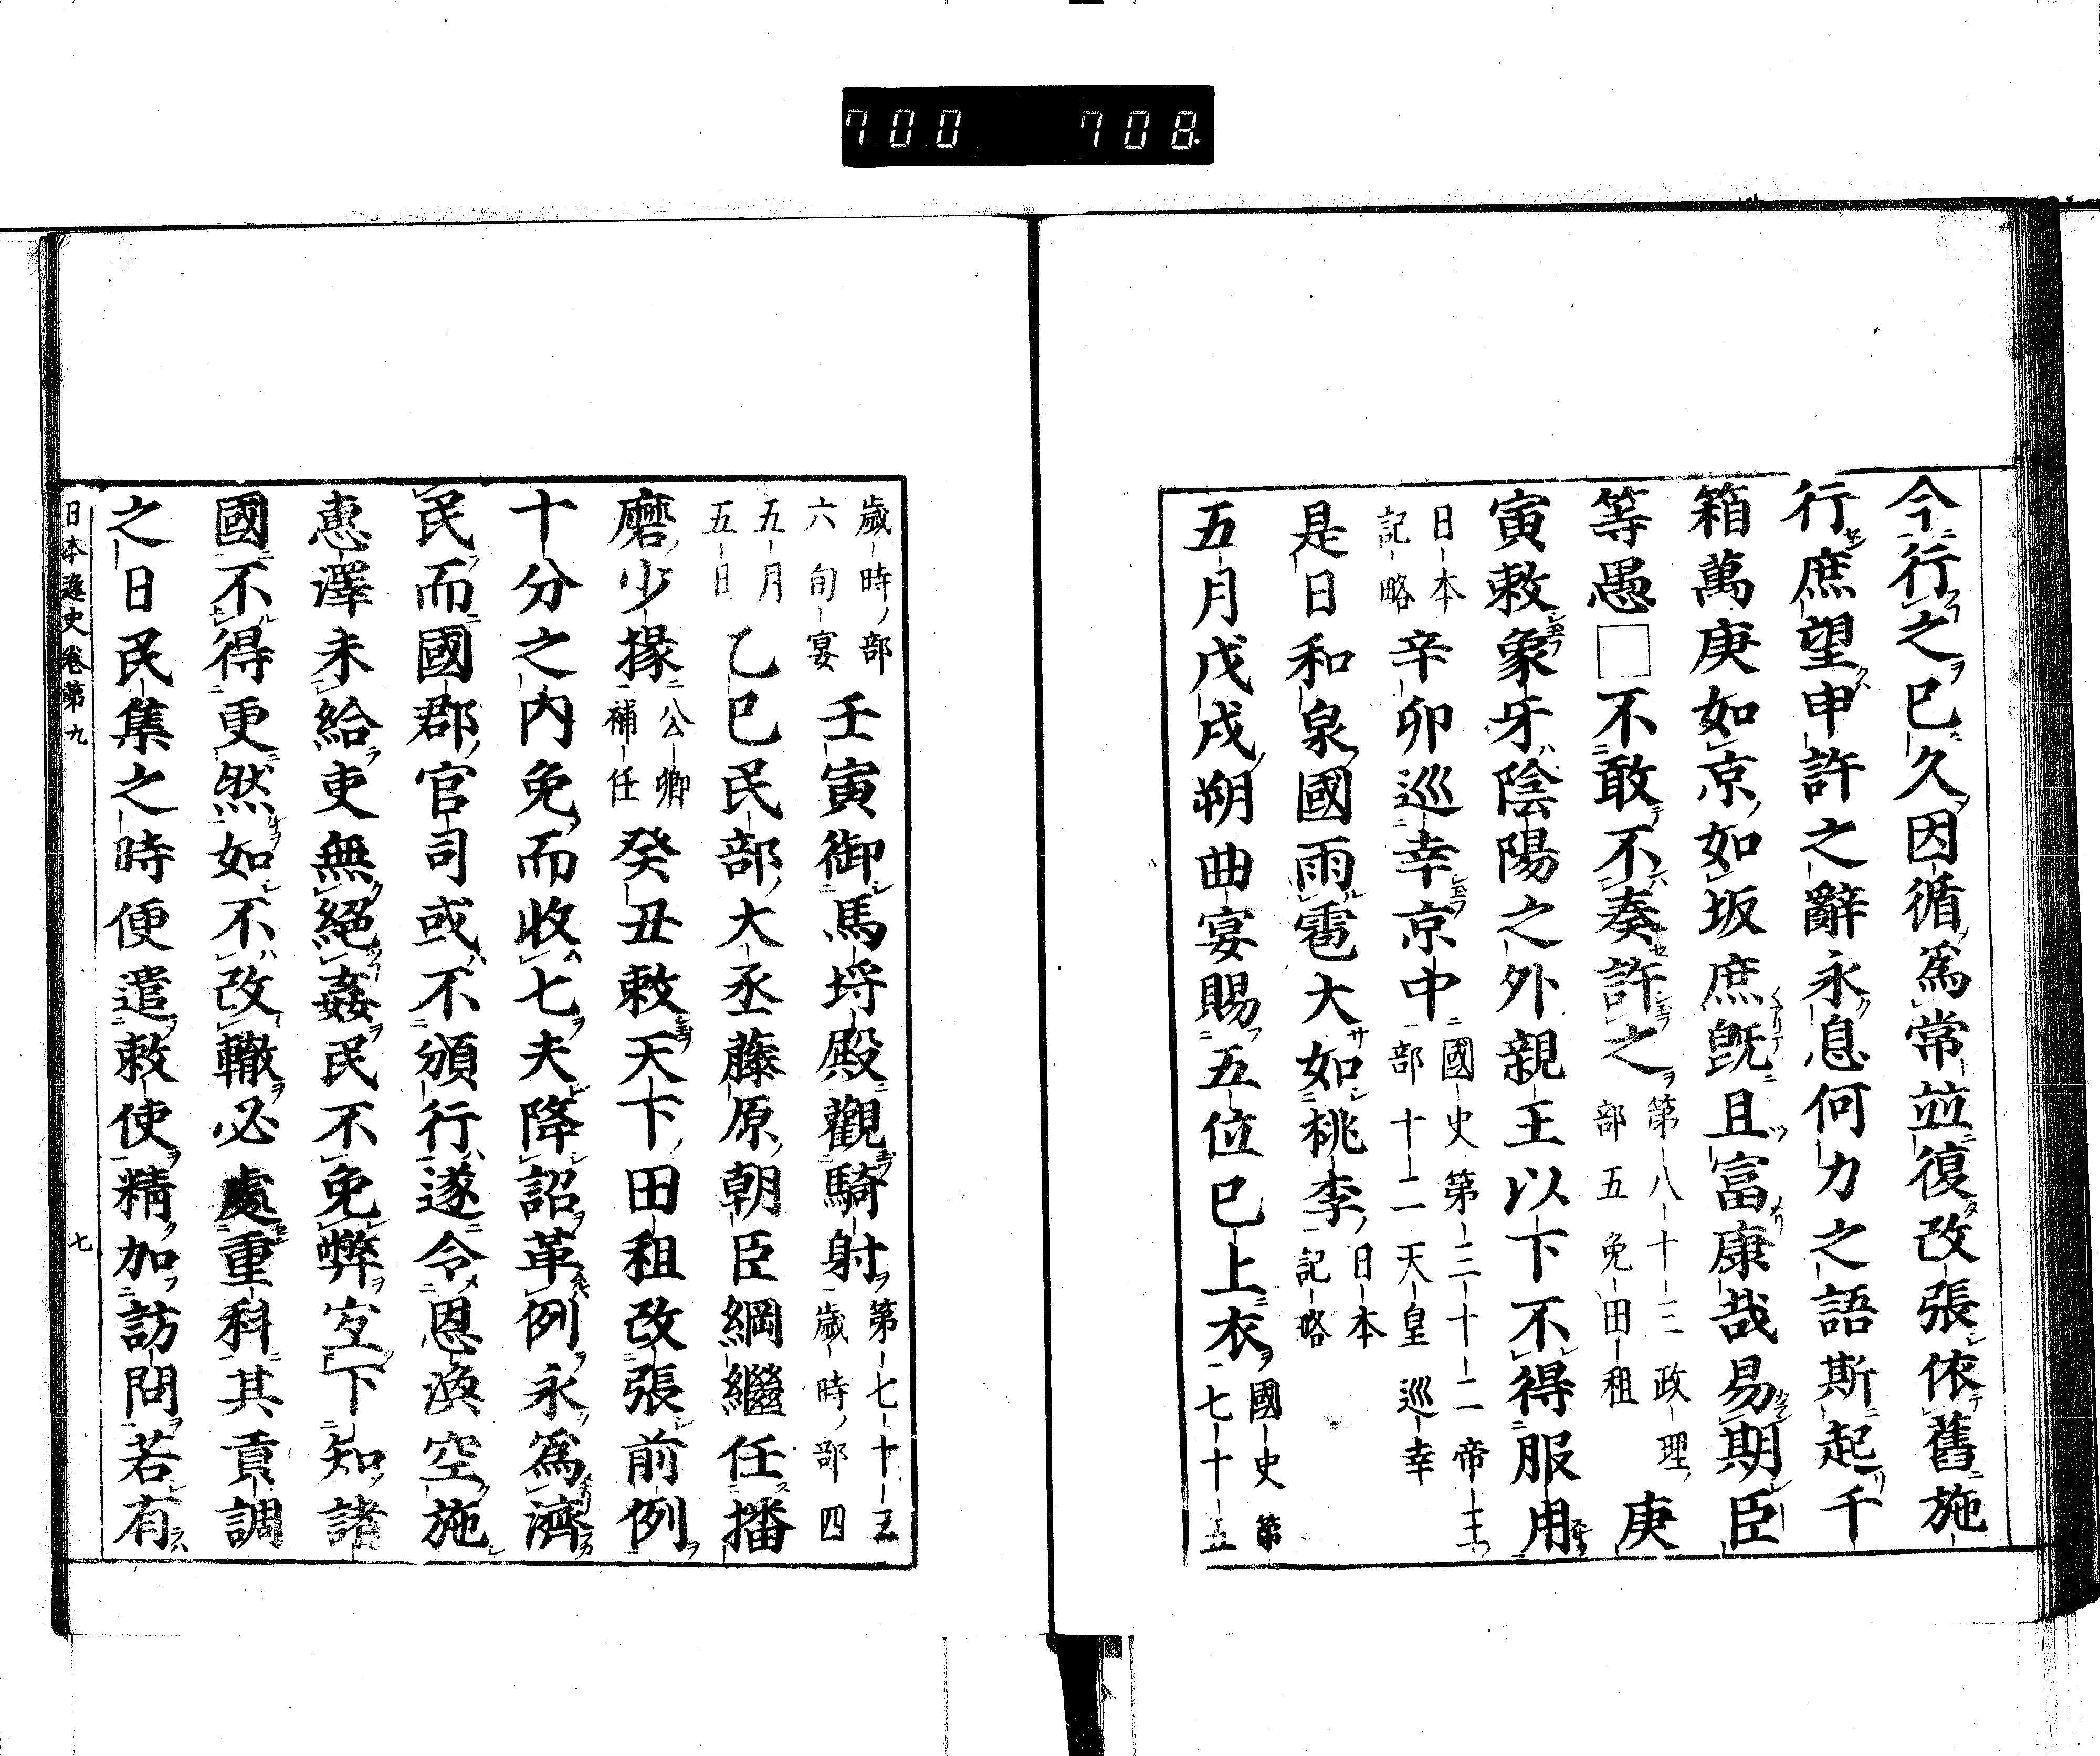 700 708
今行之已久因循爲常並復改張依舊施
行庶望申許之辭永息何力之語斯起千
箱萬庚如京如坂庶旣且富康哉易期臣
等愚□不敢不奏許之第八十三政理部五免田租庚
寅敕象牙陰陽之外親王以下不得服用
日本記略辛卯巡幸京中國史第三十二帝王部十二天皇巡幸
是日和泉國雨雹大如桃李日本記略
五月戊戌朔曲宴賜五位已上衣國史第七十五
歲時部六旬宴壬寅御馬埒殿觀騎射第七十三歲時部四
五月五日乙巳民部大丞藤原朝臣綱繼任播
磨少掾公卿補任癸丑敕天下田租改張前例
十分之內免而收七夫降詔革例永爲濟
民而國郡官司或不頒行遂令恩渙空施
惠澤未給吏無絕姦民不免弊宐下知諸
國不得更然如不改轍必處重科其貢調
之日民集之時便遣敕使精加訪問若有
日本逸史卷第九 七